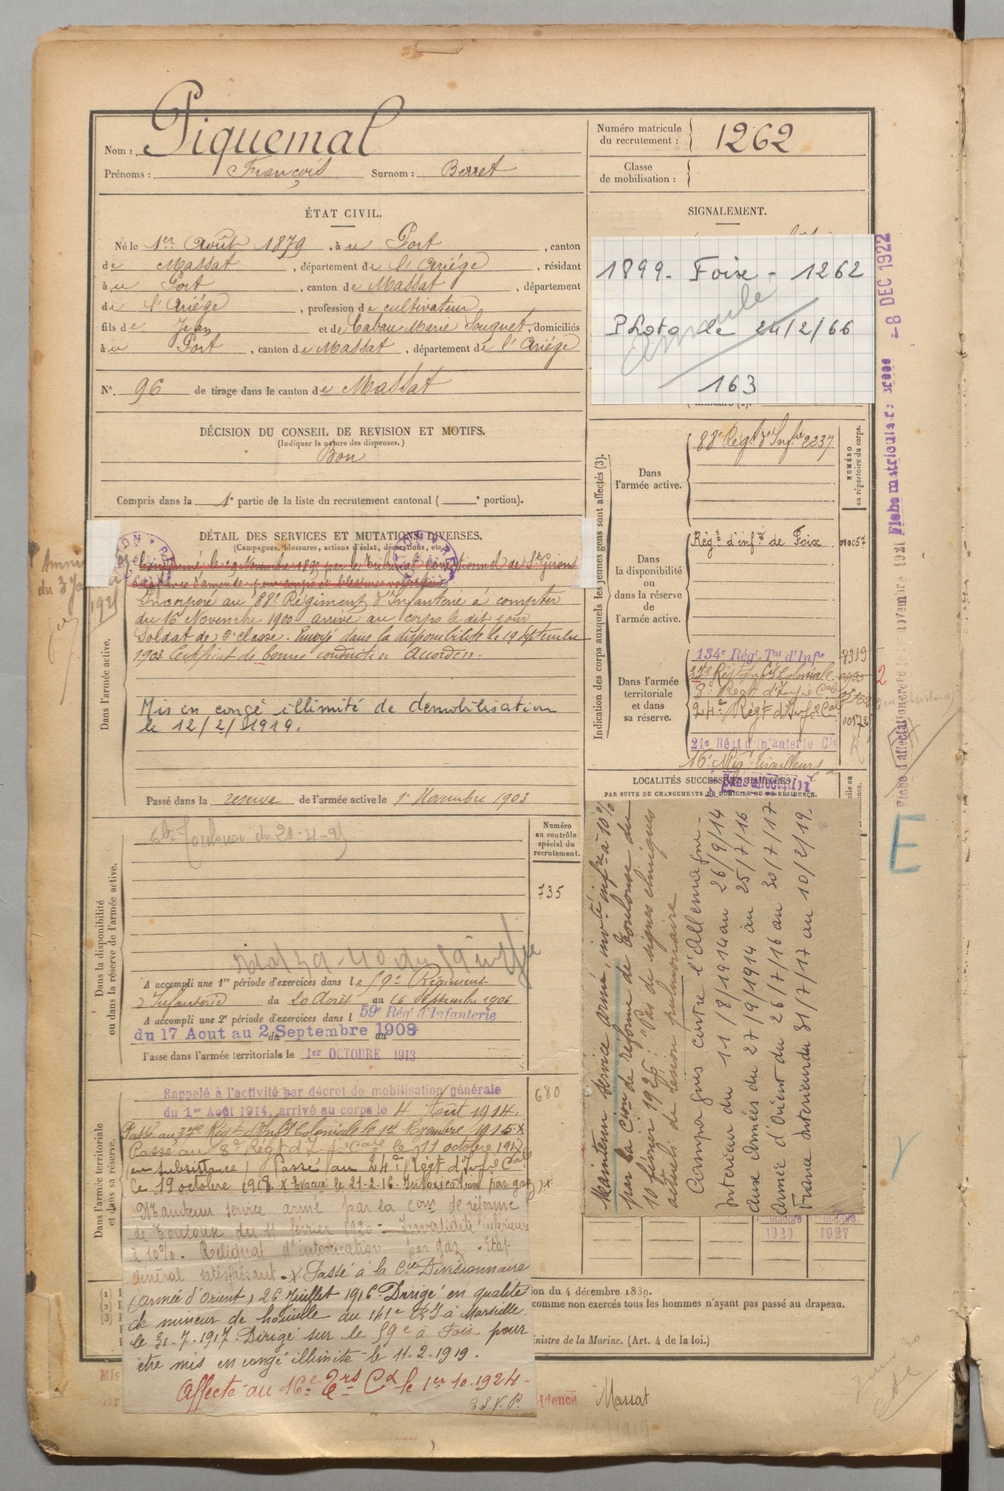 Nom : Piquemal
Prénoms : François Surnom : Berret
Numéro matricule du recrutement : 1262
Classe de mobilisation :
ÉTAT CIVIL.
Né le 1er Août 1879, à u Port, canton
de Massat, département de l'Ariége, résidant
à u Port, canton de Massat, département
de l'Ariége, profession de cultivateur
fils de Jean et de Cabau Marie Souquet, domiciliés
à u Port, canton de Massat, département de l'Ariége
N° 96 de tirage dans le canton de Massat
DÉCISION DU CONSEIL DE REVISION ET MOTIFS.
(Indiquer la nature des dispenses.)
Bon
Compris dans la 1e partie de la liste du recrutement cantonal ( portion).
DÉTAIL DES SERVICES ET MUTATIONS DIVERSES.
(Campagnes, blessures, actions d'éclat, décorations, etc.)
Dans l'armée active.
Incorporé au 88e Régiment d'Infanterie à compter
du 16 Novembre 1900 arrivé au corps le dit jour
Soldat de 2e classe. Envoyé dans la disponibilité le 19 Septembre
1903 Certificat de bonne conduite Accordé.
Mis en congé illimité de démobilisation
le 12/2/1919.
Passé dans la reserve de l'armée active le 1er Novembre 1903
Dans la disponibilité ou dans la réserve de l'armée active.
Numéro au contrôle spécial du recrutement.
735
A accompli une 1re période d'exercices dans le 59e Régiment
d'Infanterie du 20 Août au 16 Septembre 1906
A accompli une 2e période d'exercices dans l 59e Rég d'Infanterie
du 17 Aout au 2 Septembre 1908
Passe dans l'armée territoriale le 1er OCTOBRE 1913
Dans l'armée territoriale et dans sa réserve.
680
Rappelé à l'activité par décret de mobilisation générale
du 1er Août 1914, arrivé au corps le 4 Août 1914.
Passé au 37e Régt d'Inf Coloniale le 1er Novembre 1915 x
Passé au 8e Régt d'Infie Cale le 11 octobre 1917
en subsistance) Passé au 24e Régt d'Infie Cale
le 19 octobre 1918 x Evacué le 21-2-16. Intoxication par gaz) x
Maintenu service armé par la Con de réforme
de Toulouse du 11 février 1920 = Invalidité inférieure
à 10%. Reliquat d'intoxication par gaz - Etat
général satisfaisant. x Passé à la Cie Divisionnaire
(Armée d'Orient) 26 Juillet 1916 Dirigé en qualité
de mineur de houille du 141e RI à Marseille
le 31-7-1917. Dirigé sur le 59e à Foix pour
être mis en congé illimité le 11-2-1919.
Affecté au 16e Trs Cx le 1er 10-1924 -
T.S.V.P.
SIGNALEMENT.
1899 - Foix - 1262
Photo de 24/2/66
annule
163
Indication des corps auxquels les jeunes gens sont affectés (3).
NUMÉRO au répertoire du corps.
Dans l'armée active.
88e Régt d'Infie 2237
Dans la disponibilité ou dans la réserve de l'armée active.
Régt d'infie de Foix 01057
Dans l'armée territoriale et dans sa réserve.
134e Régt Tal d'Infie 8319
37e Régt Infie Coloniale
8e Régt d'Infie Cale
24e Régt d'Infie Cale 10172
21e Régt d'Infanterie Cle
16e Rég Tirailleurs
LOCALITÉS SUCCESSIVES HABITÉES
PAR SUITE DE CHANGEMENTS DE DOMICILE OU DE RÉSIDENCE.
Maintenu service armé, invté infre à 10%
par la Con de réforme de Toulouse du
10 février 1925: "Pas de signes cliniques
actuels de lésion pulmonaire
Campagnes contre l'Allemagne -
Intérieur du 11/8/1914 au 26/9/14
Aux Armées du 27/9/1914 au 25/7/16
Armée d'Orient du 26/7/16 au 30/7/17
France Intérieur du 31/7/17 au 10/2/19
1920 1927
ion du 4 décembre 1889.
comme non exercés tous les hommes n'ayant pas passé au drapeau.
nistre de la Marine. (Art. 4 de la loi.)
idence Massat
-8 DEC 1922
E